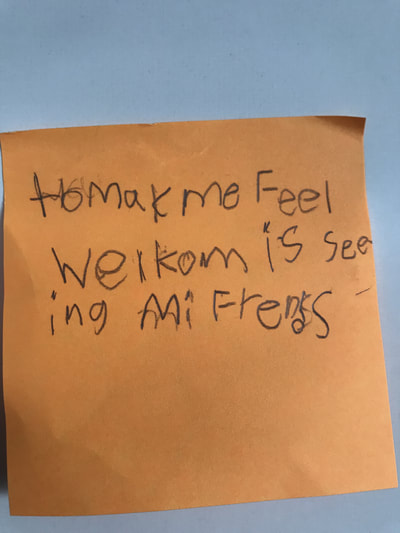 to mak me Feel
Welkom is see
ing Mi Frends